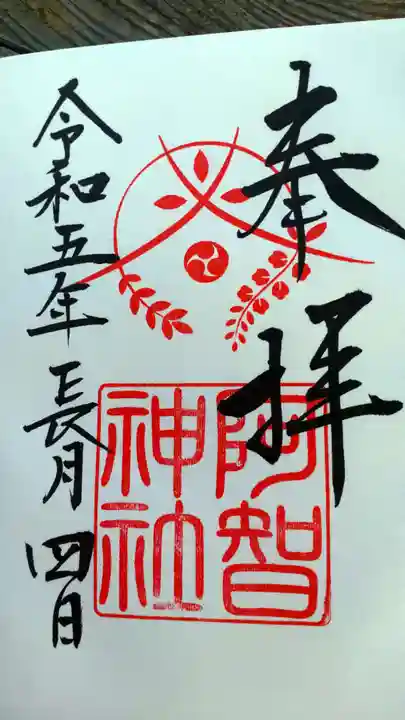 奉拝
阿智
神社
令和五年長月四日